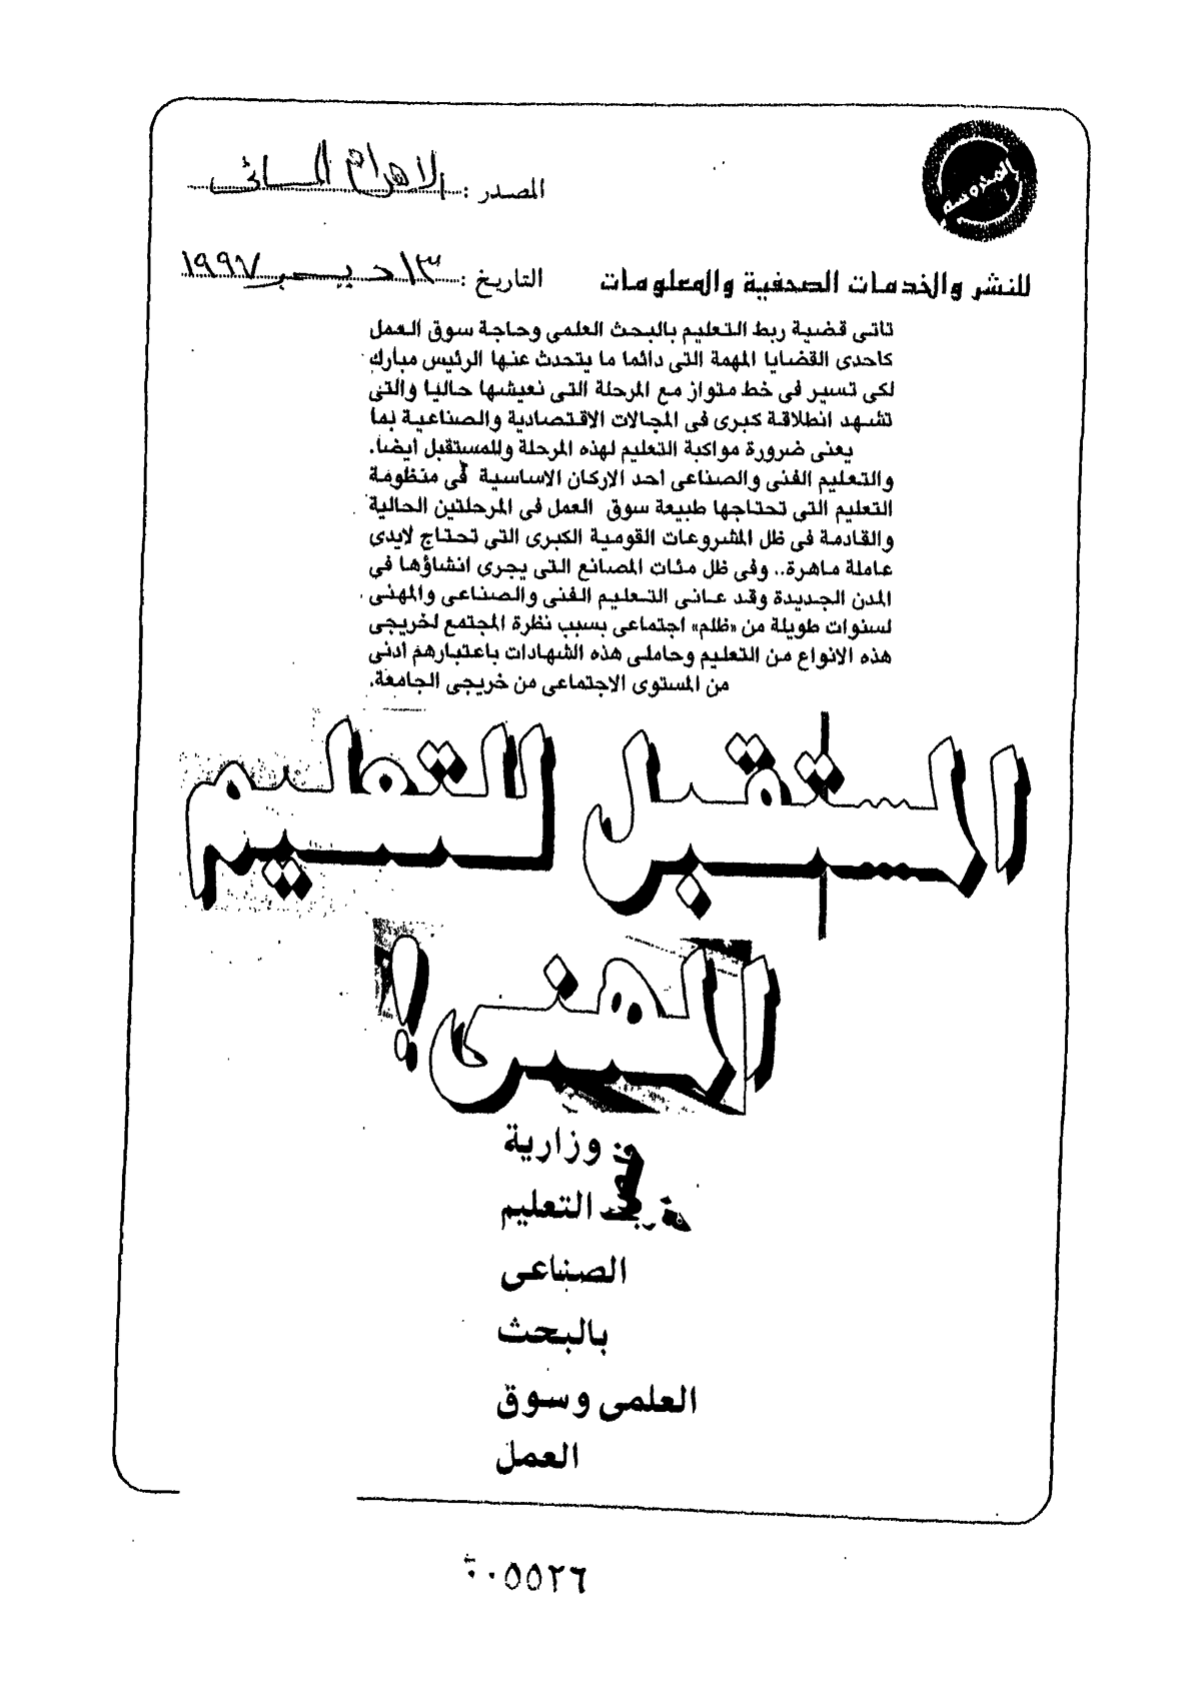 المصدر : الاهرام المسائى
التاريخ : ١٣ ديسمبر ١٩٩٧
للنشر والخدمات الصحفية والمعلومات
تاتى قضية ربط التعليم بالبحث العلمى وحاجة سوق العمل
كاحدى القضايا المهمة التى دائما ما يتحدث عنها الرئيس مبارك
لكى تسير فى خط متواز مع المرحلة التى نعيشها حاليا والتى
تشهد انطلاقة كبرى فى المجالات الاقتصادية والصناعية بما
يعنى ضرورة مواكبة التعليم لهذه المرحلة وللمستقبل ايضا.
والتعليم الفنى والصناعى احد الاركان الاساسية فى منظومة
التعليم التى تحتاجها طبيعة سوق العمل فى المرحلتين الحالية
والقادمة فى ظل المشروعات القومية الكبرى التى تحتاج لايدى
عاملة ماهرة.. وفى ظل مئات المصانع التى يجرى انشاؤها فى
المدن الجديدة وقد عانى التعليم الفنى والصناعى والمهنى
لسنوات طويلة من «ظلم» اجتماعى بسبب نظرة المجتمع لخريجى
هذه الانواع من التعليم وحاملى هذه الشهادات باعتبارهم ادنى
من المستوى الاجتماعى من خريجى الجامعة.
المستقبل للتعليم
المهنى!
وزارية
التعليم
الصناعى
بالبحث
العلمى وسوق
العمل
٠٠٥٥٢٦